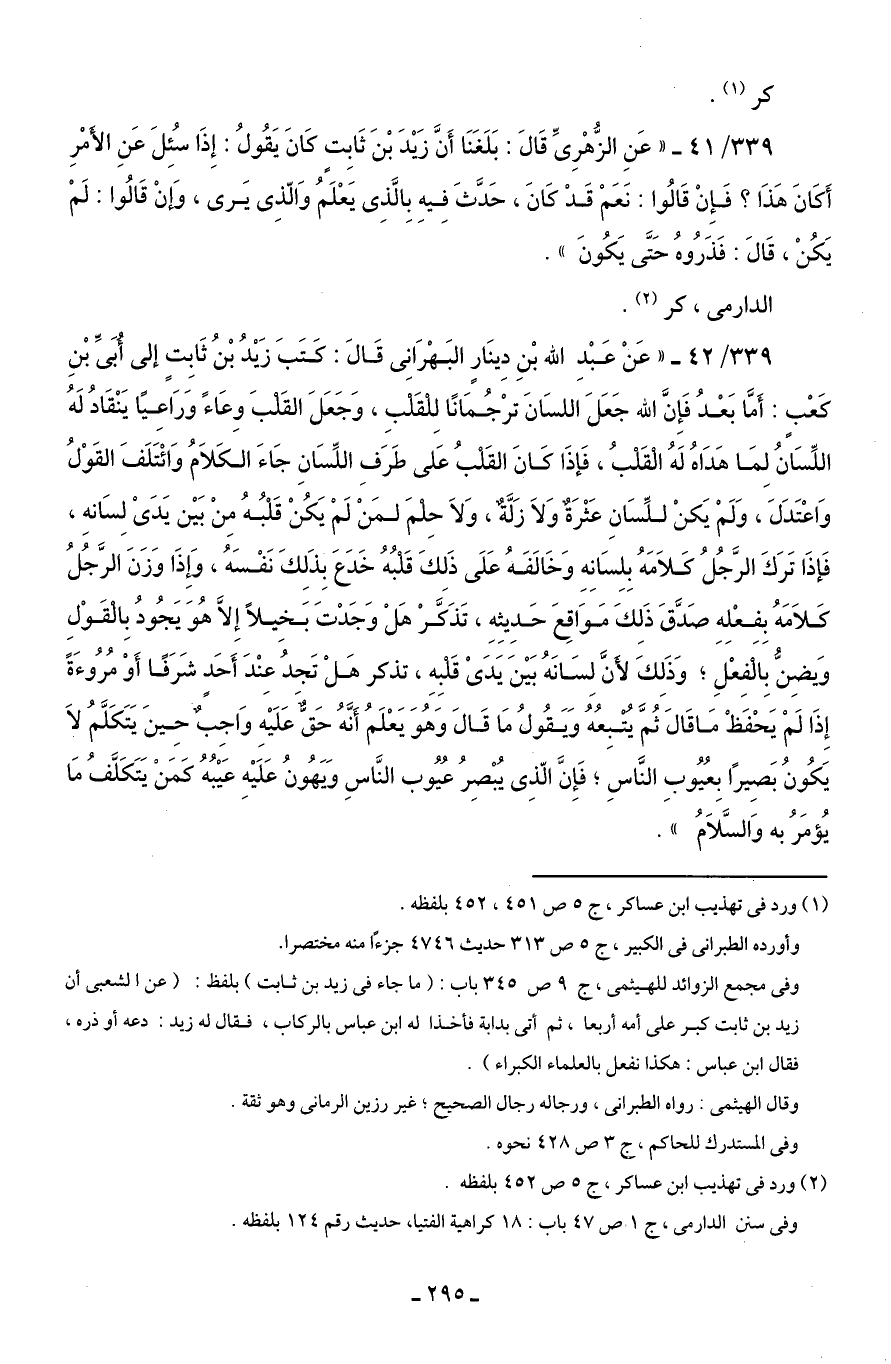 كر (١) .
٤١/٣٣٩ ـ « عَنِ الزُّهْرِىِّ قَالَ : بَلَغَنَا أَنَّ زَيْدَ بْنَ ثَابِتٍ كَانَ يَقُولُ : إِذَا سُئِلَ عَنِ الأَمْرِ
أَكَانَ هَذَا ؟ فَإِنْ قَالُوا : نَعَمْ قَدْ كَانَ ، حَدَّثَ فِيهِ بِالَّذِى يَعْلَمُ وَالَّذِى يَرى ، وَإِنْ قَالُوا : لَمْ
يَكُنْ ، قَالَ : فَذَرُوهُ حَتَّى يَكُونَ » .
الدارمى ، كر (٢) .
٤٢/٣٣٩ ـ « عَنْ عَبْدِ الله بْنِ دِينَارٍ البَهْرَانِى قَالَ : كَتَبَ زَيْدُ بْنُ ثَابِتٍ إِلى أُبَىِّ بْنِ
كَعْبٍ : أَمَّا بَعْدُ فَإِنَّ الله جَعَلَ اللسَانَ تَرْجُمَانًا لِلقَلْبِ ، وَجَعَلَ القَلْبَ وِعَاءً وَرَاعِيًا يَنْقَادُ لَهُ
اللِّسَانُ لِمَا هَدَاهُ لَهُ الْقَلْبُ ، فَإِذَا كَانَ القَلْبُ عَلى طَرَفِ اللِّسَانِ جَاءَ الكَلاَمُ وَائْتَلَفَ القَوْلُ
وَاعْتَدَلَ ، وَلَمْ يَكُنْ لِلِّسَانِ عَثْرَةٌ وَلاَ زَلَّةٌ ، وَلاَ حِلْمَ لِمَنْ لَمْ يَكُنْ قَلْبُهُ مِنْ بَيْنِ يَدَىْ لِسَانِهِ ،
فَإِذَا تَرَكَ الرَّجُلُ كَلاَمَهُ بِلِسَانِهِ وَخَالَفَهُ عَلَى ذَلِكَ قَلْبُهُ خَدَعَ بِذَلِكَ نَفْسَهُ ، وَإِذَا وَزَنَ الرَّجُلُ
كَلاَمَهُ بِفِعْلِهِ صَدَّقَ ذَلِكَ مَوَاقِعَ حَدِيثِهِ ، تَذَكَّرْ هَلْ وَجَدْتَ بَخِيلاً إِلاَّ هُوَ يَجُودُ بِالْقَوْلِ
وَيَضِنُّ بِالْفِعْلِ ؛ وَذَلِكَ لأَنَّ لِسَانَهُ بَيْنَ يَدَىْ قَلْبِهِ ، تذكر هَلْ تَجِدُ عِنْدَ أَحَدٍ شَرَفًا أَوْ مُرُوءَةً
إِذَا لَمْ يَحْفَظْ مَاقَالَ ثُمَّ يُتْبِعُهُ وَيَقُولُ مَا قَالَ وَهُوَ يَعْلَمُ أَنَّهُ حَقٌّ عَلَيْهِ وَاجِبٌ حِينَ يَتَكَلَّمُ لاَ
يَكُونُ بَصِيرًا بِعُيُوبِ النَّاسِ ؛ فَإِنَّ الَّذِى يُبْصِرُ عُيُوبَ النَّاسِ وَيَهُونُ عَلَيْهِ عَيْبُهُ كَمَنْ يَتَكَلَّفُ مَا
يُؤمَرُ بِهِ وَالسَّلاَمُ » .
(١) ورد فى تهذيب ابن عساكر ، ج ٥ ص ٤٥١ ، ٤٥٢ بلفظه .
وأورده الطبرانى فى الكبير ، ج ٥ ص ٣١٣ حديث ٤٧٤٦ جزءًا منه مختصرا.
وفى مجمع الزوائد للهيثمى ، ج ٩ ص ٣٤٥ باب : ( ما جاء فى زيد بن ثابت ) بلفظ : ( عن الشعبى أن
زيد بن ثابت كبر على أمه أربعا ، ثم أتى بدابة فأخذا له ابن عباس بالركاب ، فقال له زيد : دعه أو ذره ،
فقال ابن عباس : هكذا نفعل بالعلماء الكبراء ) .
وقال الهيثمى : رواه الطبرانى ، ورجاله رجال الصحيح ؛ غير رزين الرمانى وهو ثقة .
وفى المستدرك للحاكم ، ج ٣ ص ٤٢٨ نحوه .
(٢) ورد فى تهذيب ابن عساكر ، ج ٥ ص ٤٥٢ بلفظه .
وفى سنن الدارمى ، ج ١ ص ٤٧ باب : ١٨ كراهية الفتيا، حديث رقم ١٢٤ بلفظه .
ـ ٢٩٥ ـ